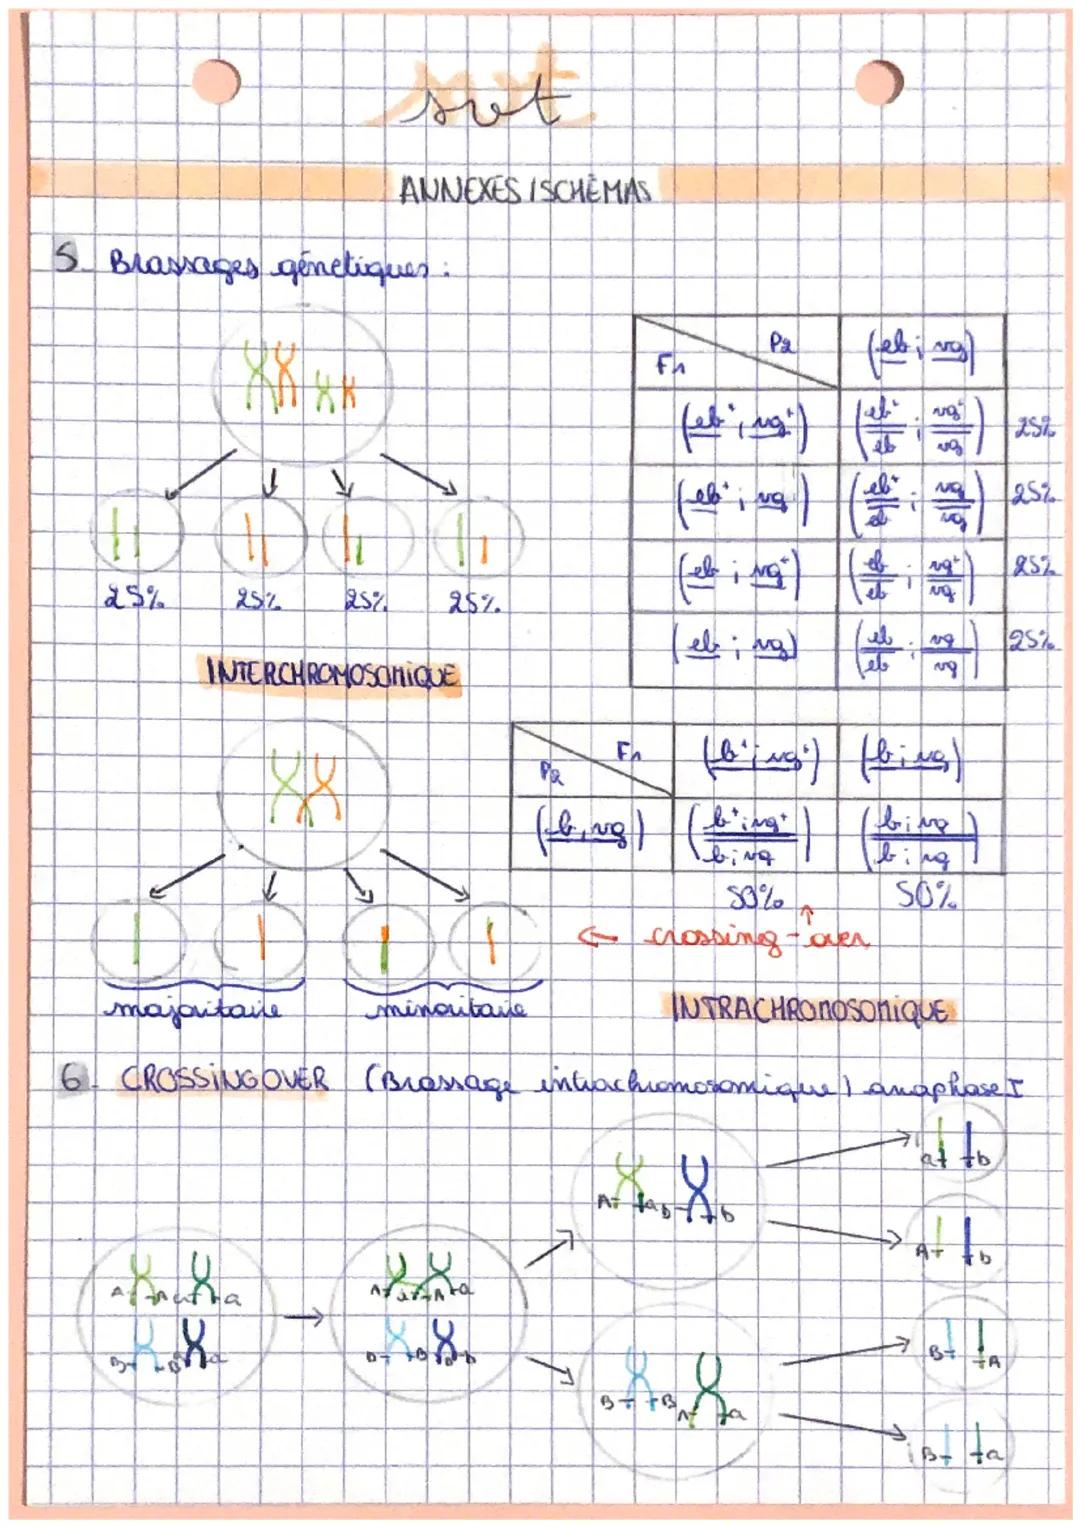 svt
ANNEXES / SCHÉMAS
5. Brassages génétiques :
25% 25% 25% 25%
INTERCHROMOSOMIQUE
F1 P2 (eb ; vg)
(eb⁺ ; vg⁺) (eb⁺/eb ; vg⁺/vg) 25%
(eb⁺ ; vg) (eb⁺/eb ; vg/vg) 25%
(eb ; vg⁺) (eb/eb ; vg⁺/vg) 25%
(eb ; vg) (eb/eb ; vg/vg) 25%
P2 F1 (b⁺ ; vg⁺) (b ; vg)
(b, vg) (b⁺ ; vg⁺/b ; vg) (b ; vg/b ; vg)
50% 50%
← crossing-over
majoritaire minoritaire
INTRACHROMOSOMIQUE
6. CROSSINGOVER (Brassage intrachromosomique) anaphase I
A a b b
a b
A b
A A a a
B B a
A a A a
B B b b
B B A a
B A
B a